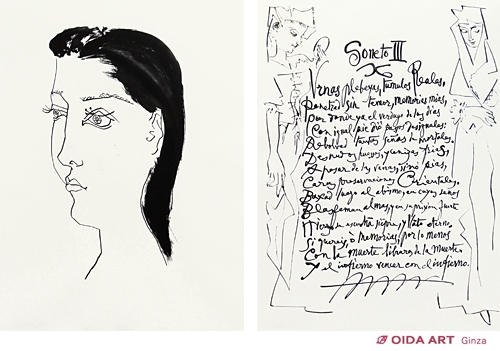 Soneto III
Urnas plebeyas, tumulos Reales,
Penetrad sin temor, memorias mias,
Por donde ya el verdugo de los dias
Con igual pie dió pasos desiguales.
Rebolved tantas señas de mortales,
Desnudos huesos, y cenizas frias,
A pesar de las vanas, si no pias,
Caras preservaciones Orientales.
Baxad luego al abismo, en cuyos senos
Blasfeman almas, y en su prision fuerte
Hierros se escuchan siempre, y llanto eterno,
Si quereis, o memorias, por lo menos
Con la muerte libraros de la muerte
Y el infierno vencer con el infierno.
OIDA ART Ginza